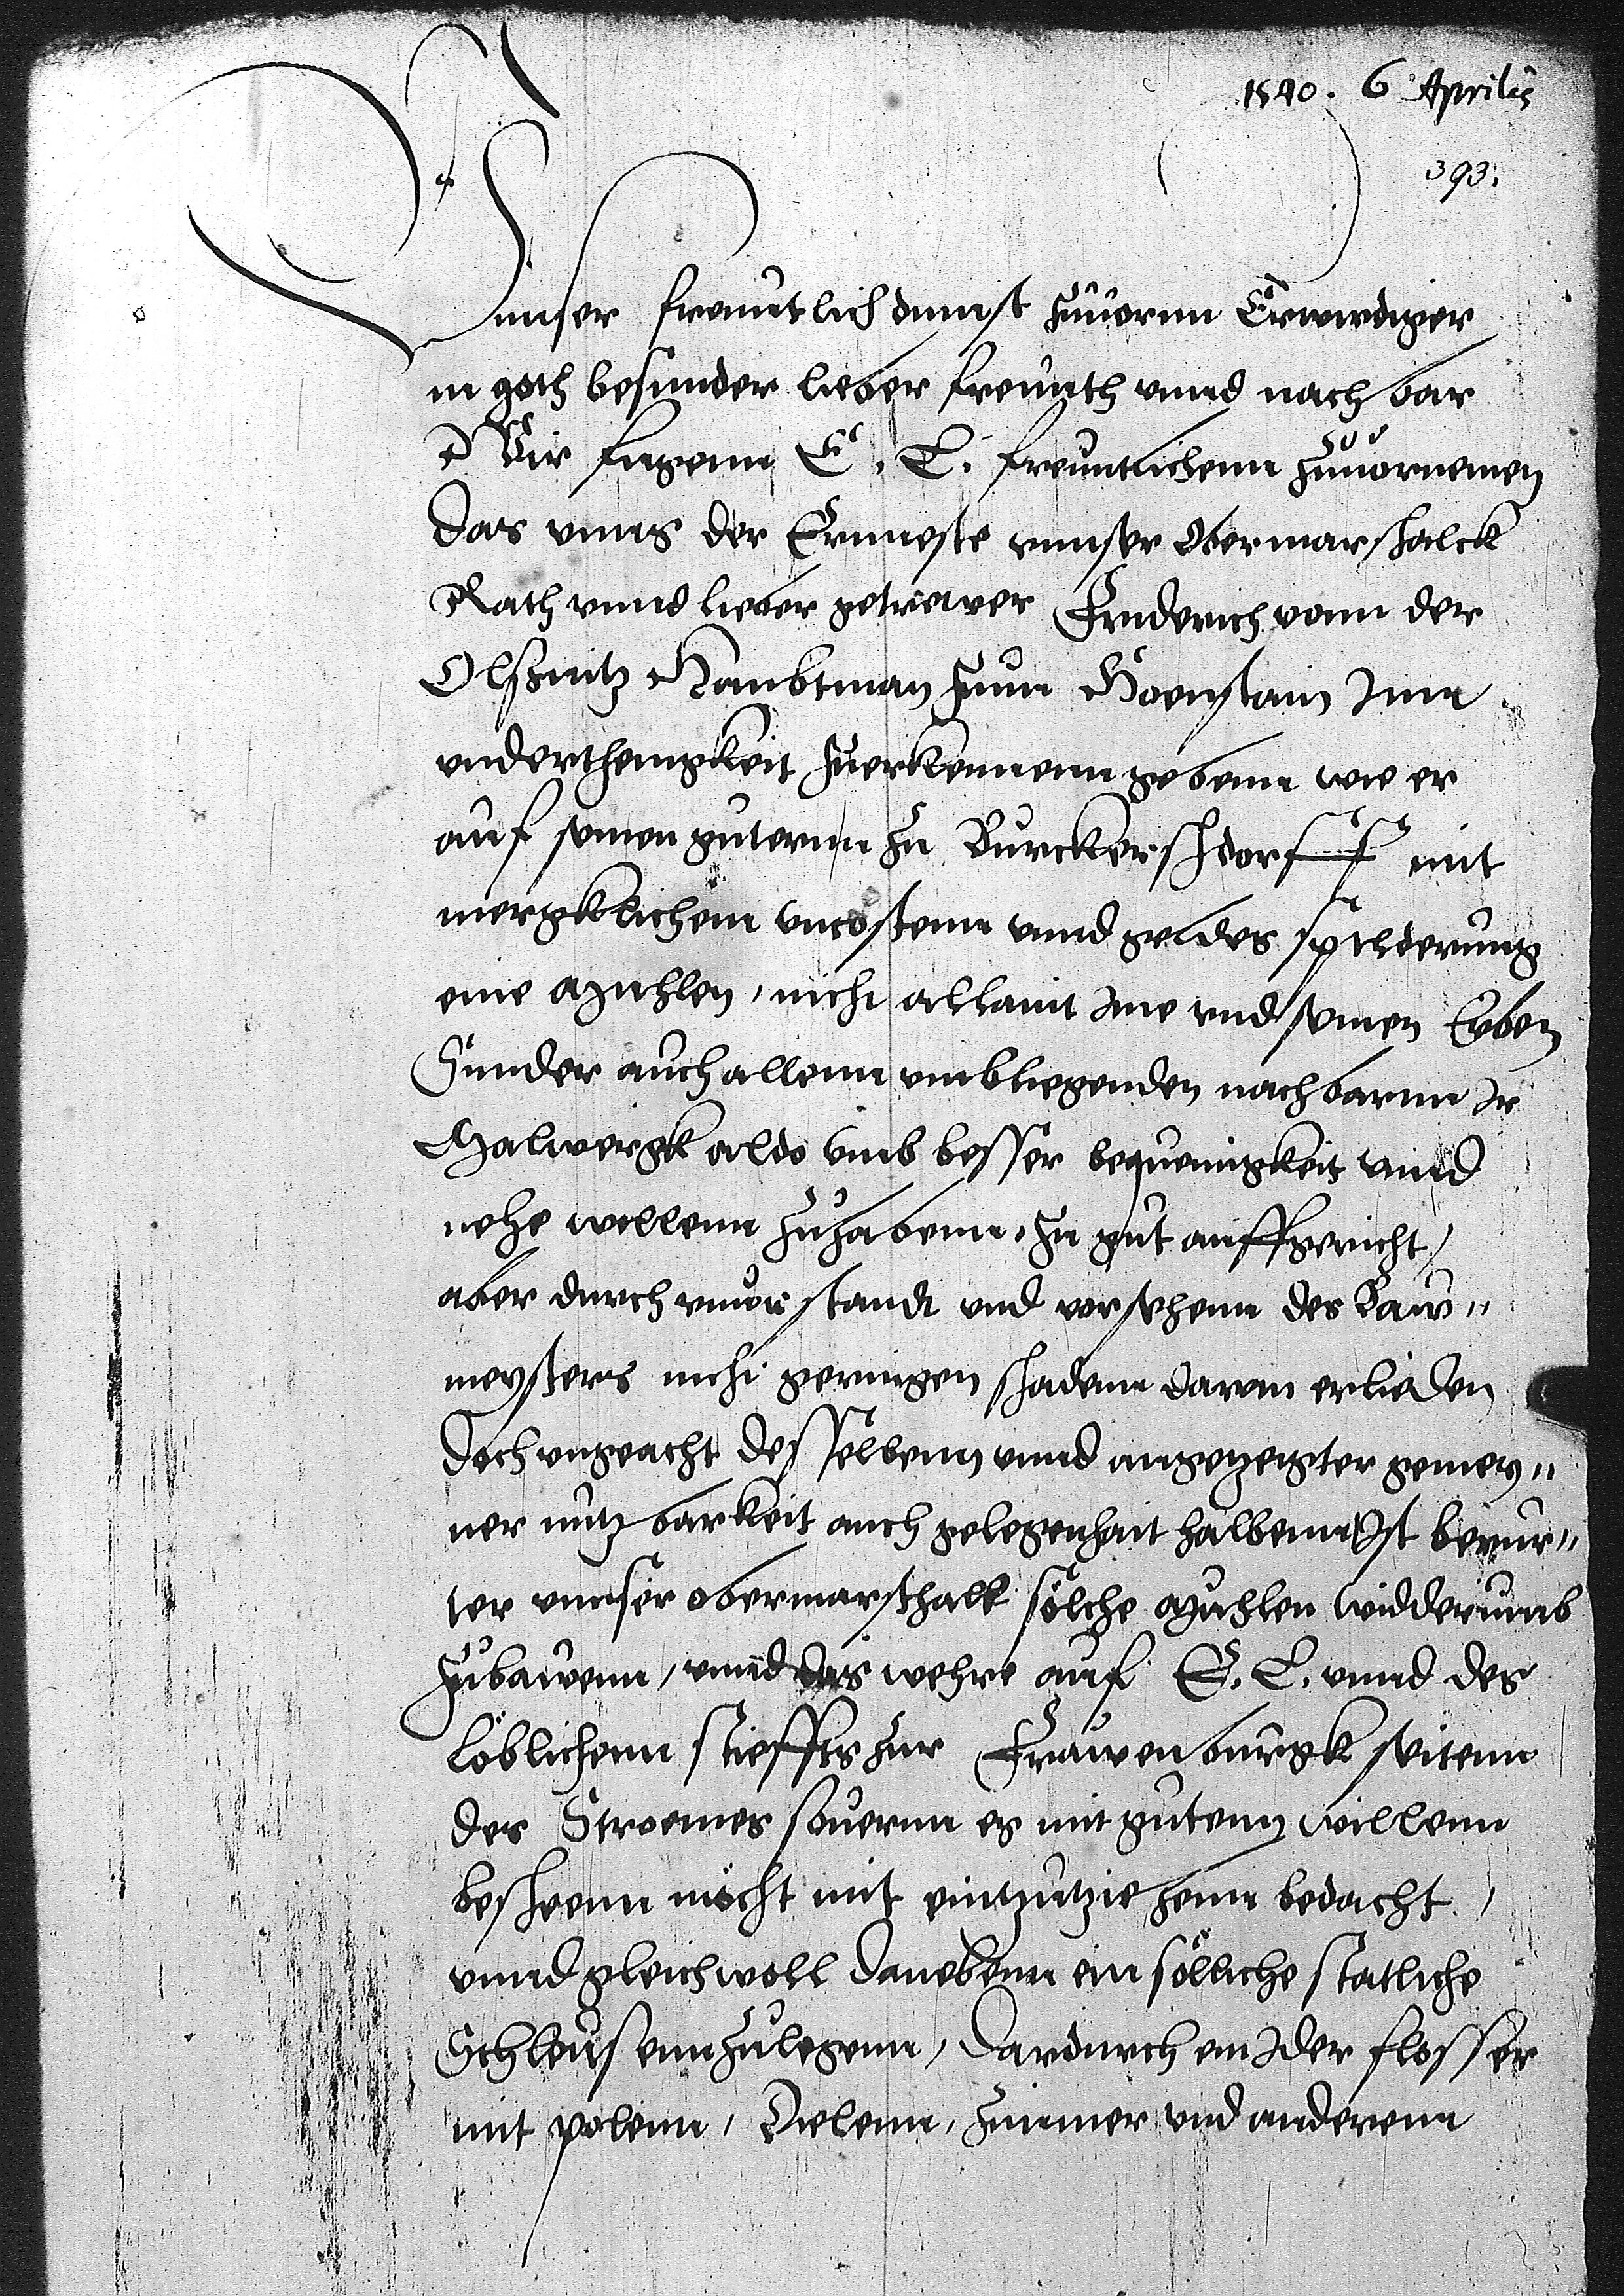 1540. 6 Aprilis
393.
Vnnser freuntlich dinnst zuuornn Erwirdiger
in goth besunder lieber freundth vnnd nachbar
Wir fuegenn E. L. freuntlichenn zuuornemen
das vnns der Ernueste vnnser Obermarschalck
Rath vnnd lieber getrewer Friderich vonn der
Olssnitz Haubtman zum Hoenstain Inn
vnderthenigkeit zuerkennenn gebenn wie er
auf seinen guternn zu Burckerschdorff mit
mergklichenn vncostenn vnnd geldes spilderung
eine Muhlen, nicht allaint Ime vnd seinen Erben
Sunder auch allenn vmbliegenden nachbarnn Ir
Malwergk aldo vmb besser bequemigkeit vnnd
nehe willenn zuhabenn, zu gut auffgericht,
aber durch vnuorstandt vnd vorsehenn des Baw"
meysters nicht geringen schadenn daran erlieden
Doch vngeacht desselbenn vnnd angezeigter gemey"
ner nutzbarkeit auch gelegenhait halbenn Ist berur"
ter vnnser obermarschalk sölche Muhlen widderumb
zubawenn, vnnd das wehre auf E. L. vnnd des
löblichenn stieffts zur Frawenburgk seitenn
des Stroemes souernn es mit gutenn willenn
beschenn möcht mit eintzutziehenn bedacht,
vnnd gleichwoll danebenn ein sölliche statliche
Schleusenn zulegenn, dardurch ein Ider flosser
mit polenn, Dielenn, zimmer vnd anderenn